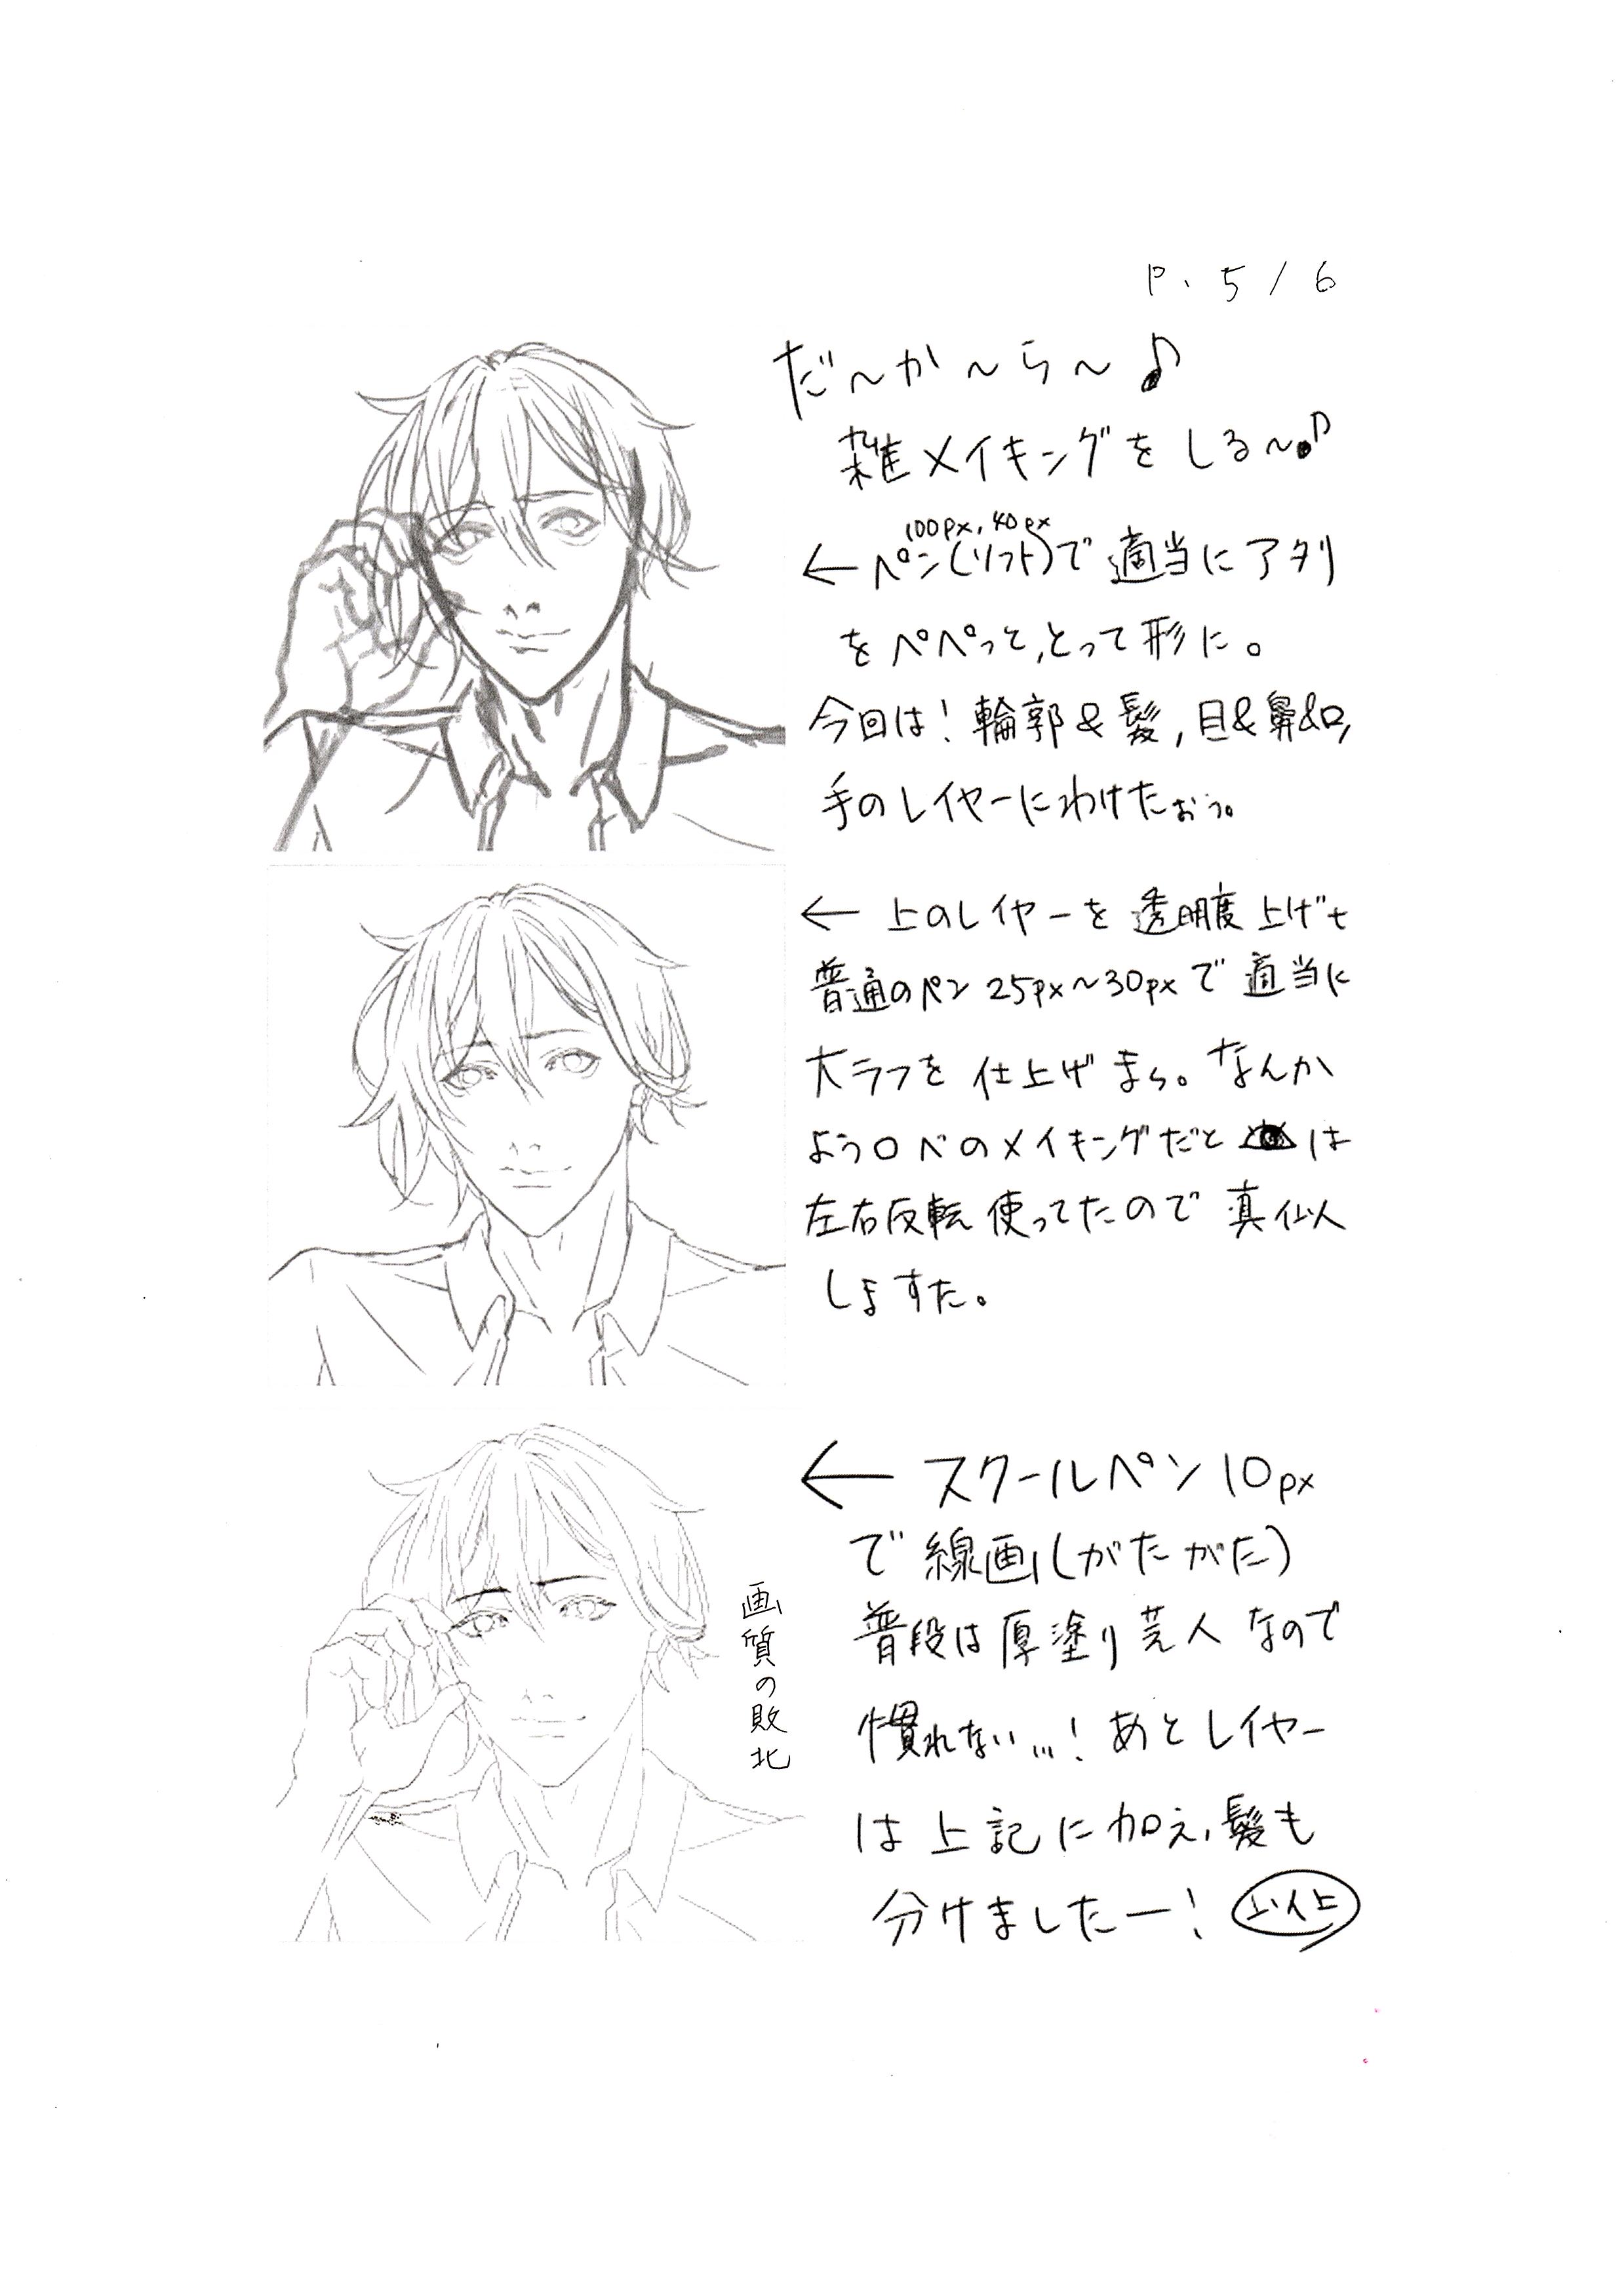 P. 5/6
だ〜か〜ら〜♪
雑メイキングをしる〜♪
100px, 40px
←ペン(ソフト)で適当にアタリ
をペペっと,とって形に。
今回は！輪郭&髪,目&鼻&口,
手のレイヤーにわけたぉぅ。
← 上のレイヤーを透明度上げt
普通のペン25px〜30pxで適当に
大ラフを仕上げまら。なんか
よう○べのメイキングだと は
左右反転使ってたので真似
しますた。
← スクールペン10px
で線画(がたがた)
普段は厚塗り芸人なので
慣れない...！あとレイヤー
は上記に加え,髪も
分けましたー！ 以上
画質の敗北